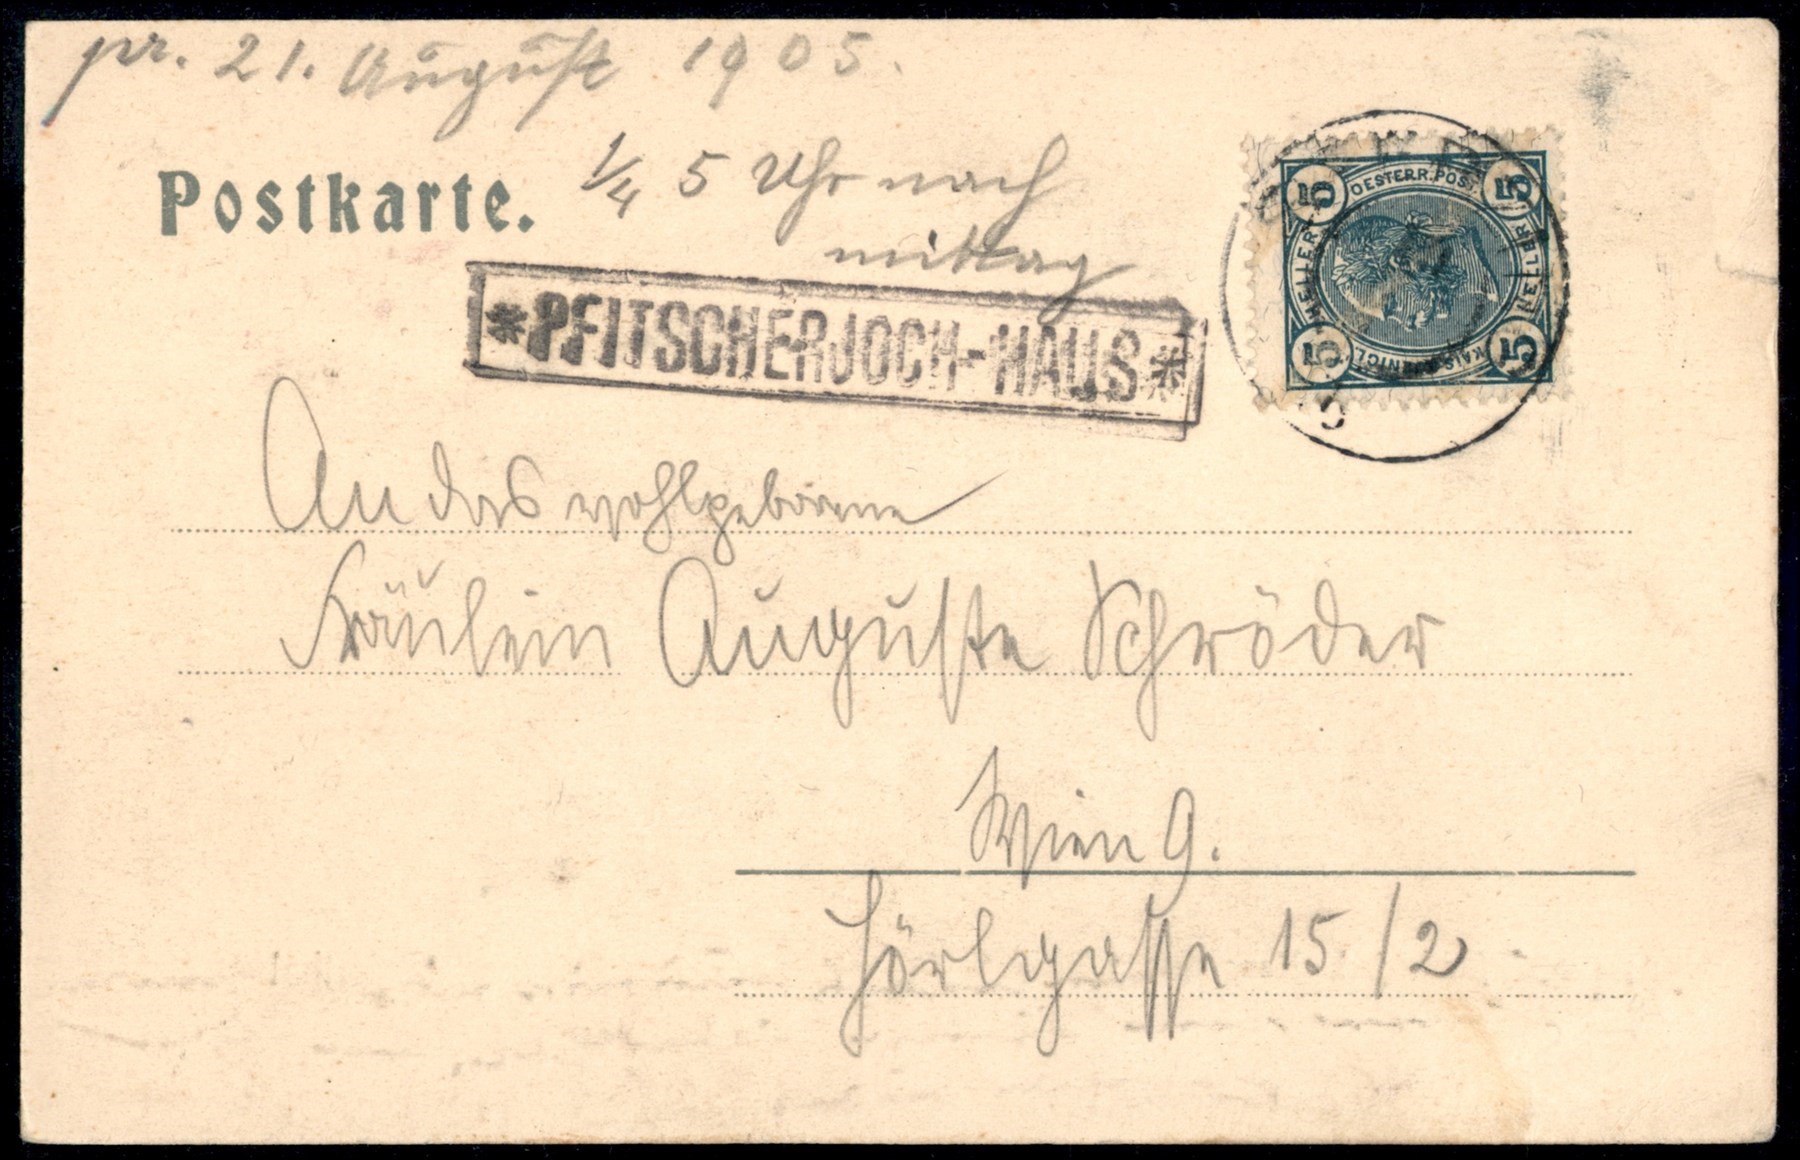 pr. 21. August 1905.
Postkarte.
1/4 5 Uhr nach
mittag
*PFITSCHERJOCH-HAUS*
5 OESTERR. POST. 5
HELLER
HELLER
5 5
An das wohlgeborene
Fräulein Auguste Schröder
Wien 9.
Hörlgasse 15/2